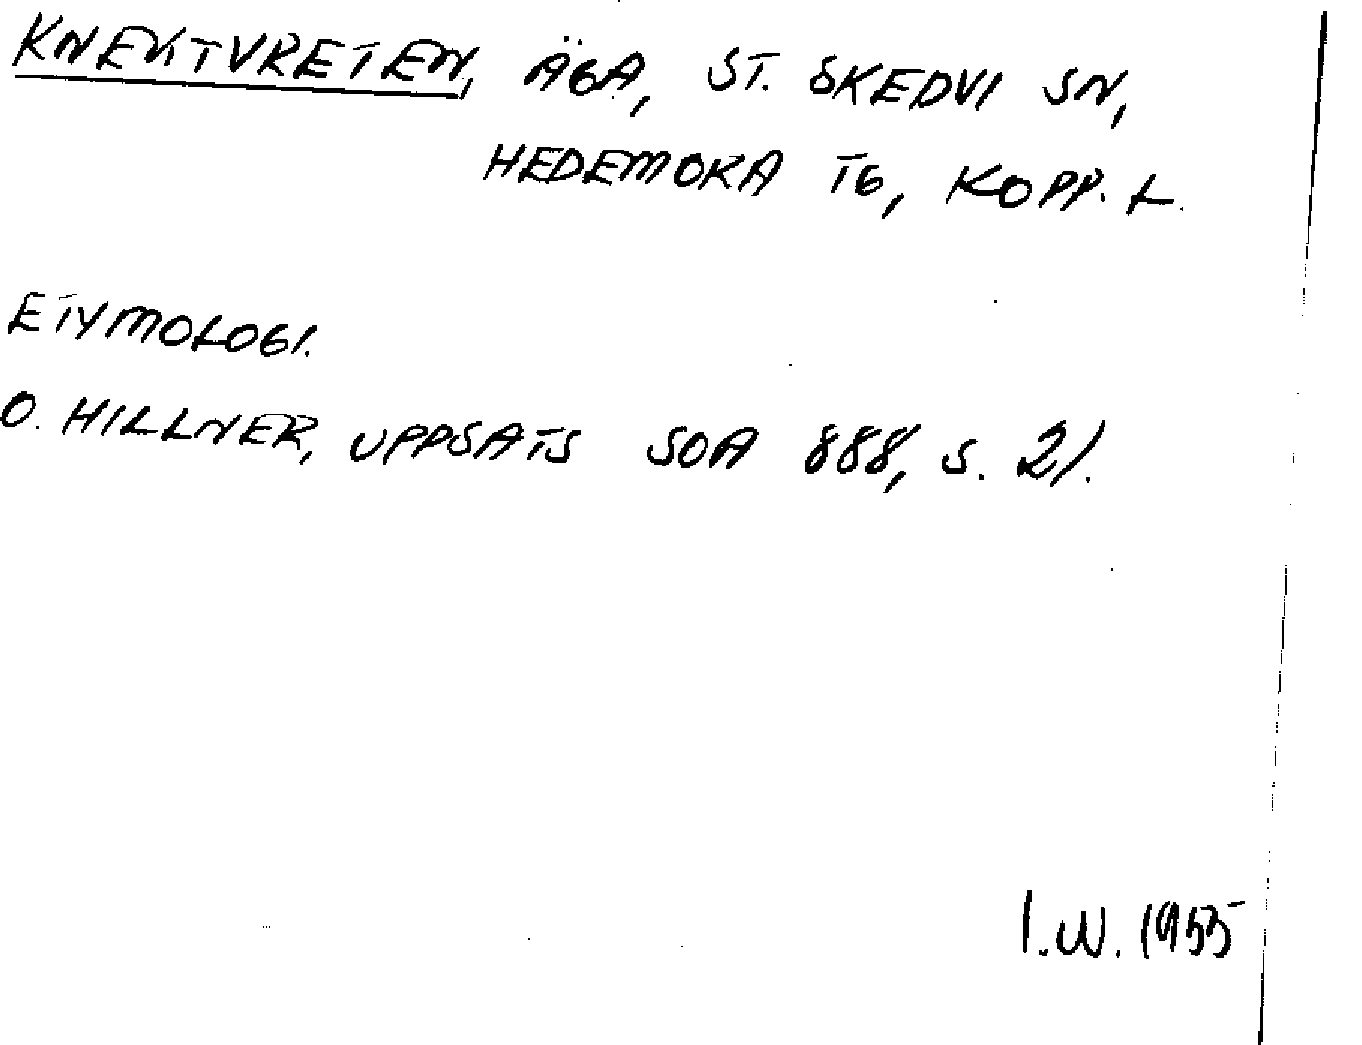 KNEKTVRETEN, ÄGA, ST. SKEDVI SN,
HEDEMORA TG, KOPP. L.
ETYMOLOGI.
O. HILLNER, UPPSATS SOA 888, S. 21.
I.W. 1955